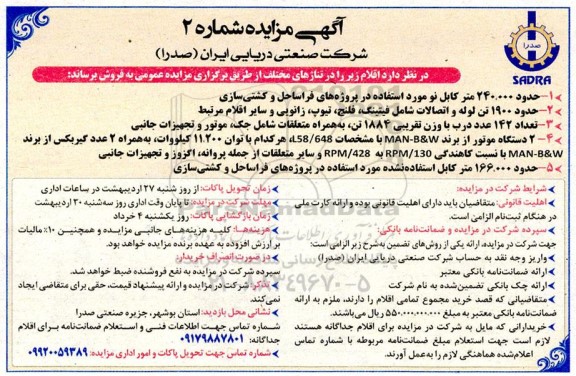 آگهی مزایده شماره ۲
شرکت صنعتی دریایی ایران (صدرا)
صدرا
SADRA
در نظر دارد اقلام زیر را در تناژهای مختلف از طریق برگزاری مزایده عمومی به فروش برساند:
۱- حدود ۲۴۰.۰۰۰ متر کابل نو مورد استفاده در پروژه‌های فراساحل و کشتی‌سازی
۲- حدود ۱۹۰۰ تن لوله و اتصالات شامل فیتینگ، فلنج، تیوپ، زانویی و سایر اقلام مرتبط
۳- تعداد ۱۴۲ عدد درب با وزن تقریبی ۱۸۸۴ تن، به‌همراه متعلقات شامل جک، موتور و تجهیزات جانبی
۴- ۲ دستگاه موتور از برند MAN-B&W با مشخصات L58/648، هرکدام با توان ۱۱.۲۰۰ کیلووات، به‌همراه ۲ عدد گیربکس از برند
MAN-B&W با نسبت کاهندگی RPM/130 به RPM/428 و سایر متعلقات از جمله پروانه، اگزوز و تجهیزات جانبی
۵- حدود ۱۶۶.۰۰۰ متر کابل استفاده‌نشده مورد استفاده در پروژه‌های فراساحل و کشتی‌سازی
شرایط شرکت در مزایده:
اهلیت قانونی: متقاضیان باید دارای اهلیت قانونی بوده و ارائه کارت ملی
در هنگام ثبت‌نام الزامی است.
سپرده شرکت در مزایده و ضمانت‌نامه بانکی:
جهت شرکت در مزایده، ارائه یکی از روش‌های تضمین به‌شرح زیر الزامی است:
واریز وجه نقد به حساب شرکت صنعتی دریایی ایران (صدرا)
ارائه ضمانت‌نامه بانکی معتبر
ارائه چک بانکی تضمین‌شده به نام شرکت
متقاضیانی که قصد خرید مجموع تمامی اقلام را دارند، ملزم به ارائه
ضمانت‌نامه بانکی معتبر به مبلغ ۵۵۰.۰۰۰.۰۰۰.۰۰۰ ریال می‌باشند.
خریدارانی که مایل به شرکت در مزایده برای اقلام جداگانه هستند
لازم است جهت استعلام مبلغ ضمانت‌نامه مربوطه با شماره تماس
اعلام‌شده هماهنگی لازم را به‌عمل آورند.
زمان تحویل پاکات: از روز شنبه ۲۷ اردیبهشت در ساعات اداری
مهلت شرکت در مزایده: تا پایان وقت اداری روز سه‌شنبه ۳۰ اردیبهشت
زمان بازگشایی پاکات: روز یکشنبه ۴ خرداد
هزینه‌ها: کلیه هزینه‌های جانبی مزایده و همچنین ۱۰٪ مالیات
بر ارزش افزوده به عهده برنده مزایده خواهد بود.
در صورت انصراف خریدار:
سپرده شرکت در مزایده به نفع فروشنده ضبط خواهد شد.
تذکر: شرکت در مزایده و ارائه پیشنهاد قیمت، حقی برای متقاضی ایجاد
نمی‌کند.
نشانی محل بازدید: استان بوشهر، جزیره صنعتی صدرا
شماره تماس جهت اطلاعات فنی و استعلام ضمانت‌نامه برای اقلام
جداگانه: ۰۹۱۷۹۸۸۷۸۰۱
شماره تماس جهت تحویل پاکات و امور اداری مزایده: ۰۹۹۲۰۰۵۹۳۸۹